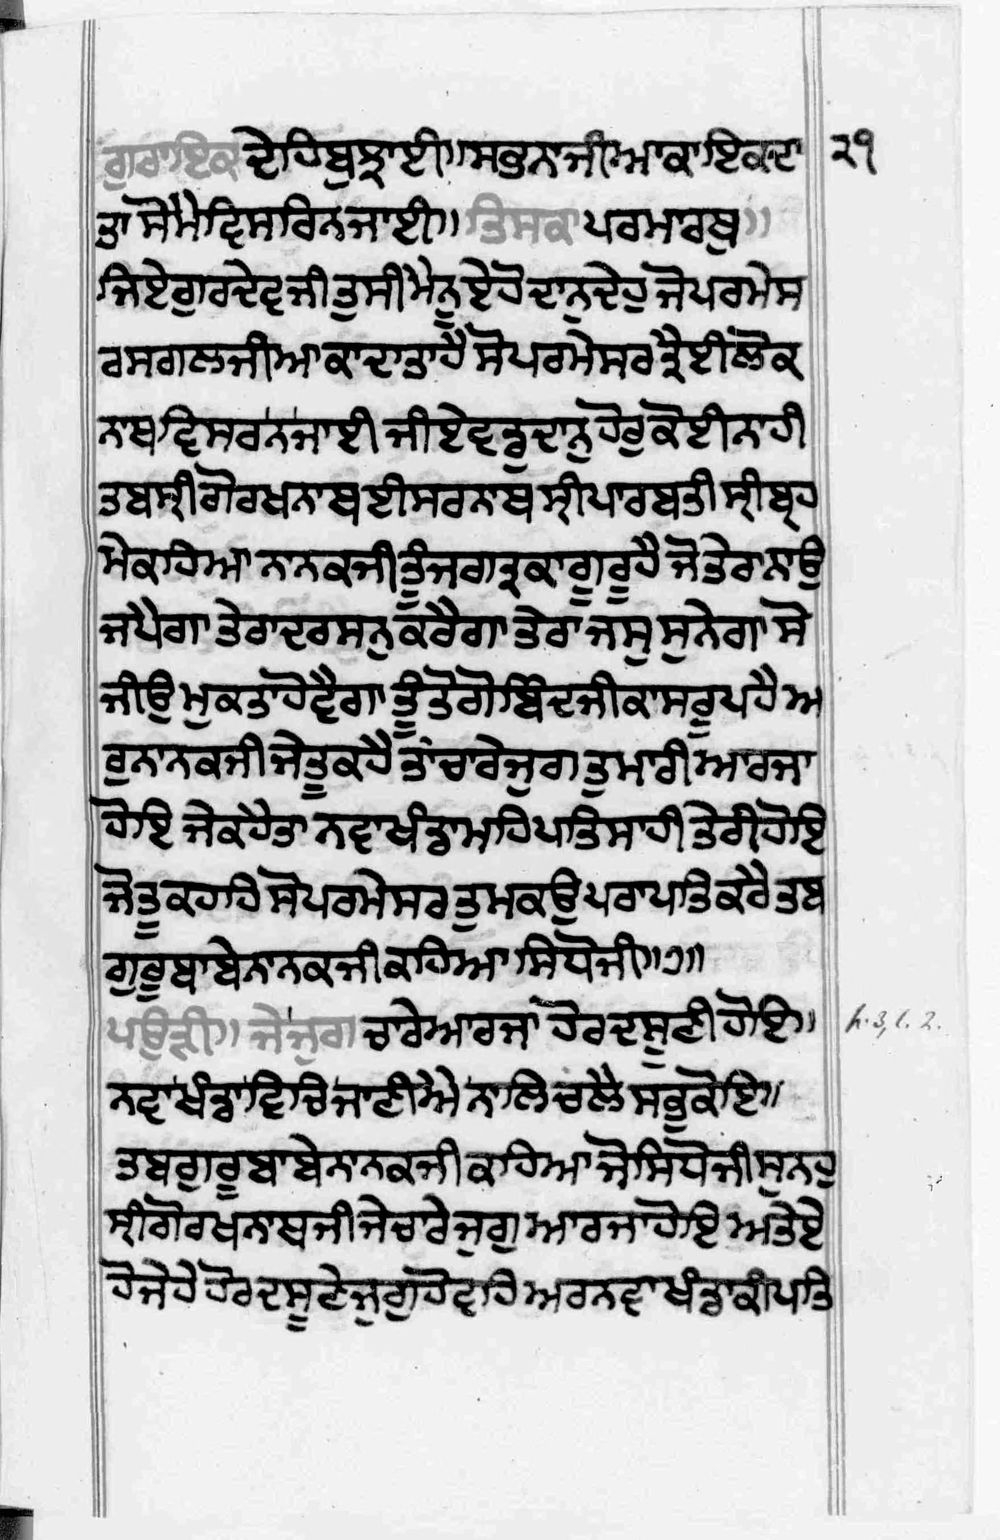 ਗੁਰਾਇਕਦੇਹਿਬੁਝਾਈ॥ਸਭਨਾਜੀਆਕਾਇਕਦਾ ੨੧
ਤਾਸੋਮੈਵਿਸਰਿਨਜਾਈ॥ਤਿਸਕਾਪਰਮਾਰਥੁ॥
ਜਿਏਗੁਰਦੇਵਜੀਤੁਸੀਮੈਨੂਏਹੋਦਾਨੁਦੇਹੁਜੋਪਰਮੇਸ
ਰਸਗਲਜੀਆਕਾਦਾਤਾਹੈਸੋਪਰਮੇਸਰਤ੍ਰੈਈਲੋਕ
ਨਾਥਵਿਸਰਨਜਾਈਜੀਏਵਡੁਦਾਨੁਹੋਰੁਕੋਈਨਾਹੀ
ਤਬਸ੍ਰੀਗੋਰਖਨਾਥਈਸਰਨਾਥਸ੍ਰੀਪਾਰਬਤੀਸ੍ਰੀਬ੍ਰਹ
ਮੇਕਹਿਆਨਾਨਕਜੀਤੂੰਜਗਤ੍ਰਕਾਗੂਰੂਹੈਜੋਤੇਰਾਨਾਉ
ਜਪੈਗਾਤੇਰਾਦਰਸਨੁਕਰੈਗਾਤੇਰਾਜਸੁਸੁਨੇਗਾਸੋ
ਜੀਉਮੁਕਤਾਹੋਵੈਗਾਤੂੰਤੋਗੋਬਿੰਦਜੀਕਾਸਰੂਪਹੈਅ
ਰੁਨਾਨਕਜੀਜੇਤੂਕਹੈਤਾਂਚਾਰੇਜੁਗਤੁਮਾਰੀਆਰਜਾ
ਹੋਇਜੇਕਹੈਤਾਨਵਾਖੰਡਾਮਹਿਪਤਿਸਾਹੀਤੇਰੀਹੋਇ
ਜੋਤੂਕਹਹਿਸੋਪਰਮੇਸਰਤੁਮਕਉਪਰਾਪਤਿਕਰੈਤਬ
ਗੁਰੂਬਾਬੇਨਾਨਕਜੀਕਹਿਆਸਿਧੋਜੀ॥੭॥
ਪਉੜੀ॥ਜੇਜੁਗਚਾਰੇਆਰਜਾਹੋਰਦਸੂਣੀਹੋਇ॥
ਨਵਾਖੰਡਾਵਿਚਿਜਾਣੀਐਨਾਲਿਚਲੈਸਭੁਕੋਇ॥
ਤਬਗੁਰੂਬਾਬੇਨਾਨਕਜੀਕਹਿਆਜੋਸਿਧੋਜੀਸੁਨਹੁ
ਸ੍ਰੀਗੋਰਖਨਾਥਜੀਜੇਚਾਰੇਜੁਗੁਆਰਜਾਹੋਇਅਤੇਏ
ਹੋਜੇਹੇਹੋਰਦਸੂਣੇਜੁਗੁਹੋਵਹਿਅਰਨਵਾਖੰਡਾਕੀਪਤਿ